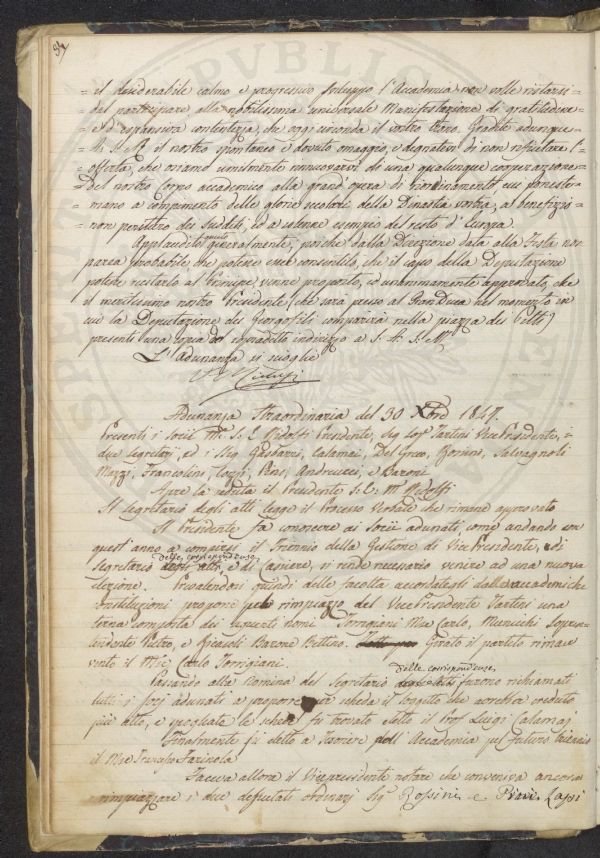 37
= il desiderabile calmo e progressivo sviluppo l'Accademia non volle ristarsi =
= dal partecipare alla nobilissima universale Manifestazione di gratitudine =
= e d'espansiva contentezza, che oggi circonda il vostro trono. Gradite adunque =
= A. V. R. il nostro spontaneo e dovuto omaggio, e degnatevi di non rifiutare l' =
= offerta, che osiamo umilmente rinnuovarvi di una qualunque cooperazione =
= del nostro Corpo accademico alla grand'opera di riordinamento cui poneste
= mano a compimento delle glorie secolari della Dinastia vostra, a benefizio =
= non perituro dei sudditi, ed a solenne esempio del resto d'Europa.
Applaudito questo generalmente, poichè dalla Direzione data alla Festa non
parea probabile che potesse esser consentito, che il capo della Deputazione
potesse recitarlo al Principe, venne proposto, ed unanimamente approvato, che
il meritissimo nostro Presidente (che sarà presso al Gran Duca nel momento in
cui la Deputazione dei Georgofili comparirà nella piazza dei Pitti)
presenti una copia del sopradetto indirizzo a S. A. I. e R.
L'adunanza si scioglie
Ridolfi
Adunanza Straordinaria del 30 Xbre 1847.
Presenti i Socii Mse S. E. Ridolfi Presidente, Sig. Tartini Vice Presidente, i
due segretari, ed i Sig. Gasbarri, Calamai, Del Greco, Bonini, Salvagnoli
Mazzi, Francolini, Cozzi, Pons, Andreucci, e Baroni
Apre la seduta il Presidente S. E. Mse Ridolfi
Il segretario degli atti legge il Processo Verbale che rimane approvato
Il Presidente fa conoscere ai Socii adunati, come andando con
quest'anno a compiersi il triennio della Gestione di Vice Presidente, di
Segretario delle corrispondenze, e di Cassiere, si rende necessario venire ad una nuova
elezione. Prevalendosi quindi delle facoltà accordategli dalle accademiche
costituzioni propone pel rimpiazzo del Vice Presidente Tartini una
terna composta dei seguenti nomi Torrigiani Mse Carlo, Manuchi Soprin-
tendente Pietro, e Ricasoli Barone Bettino. Girato il partito rimase
vinto il Mse Carlo Torrigiani.
Passando alla nomina del Segretario delle corrispondenze furono richiamati
tutti i socj adunati a proporre per scheda il soggetto che avrebber creduto
più atto, e spogliate le schede fu trovato eletto il Prof Luigi Calamaj
Finalmente fu detto a Tesoriere dell'Accademia pel futuro triennio
il Mse Farinola
Faceva allora il Vicepresidente notare che conveniva ancora
rimpiazzare i due defuntati ordinarj Sig Rossini e Lapi